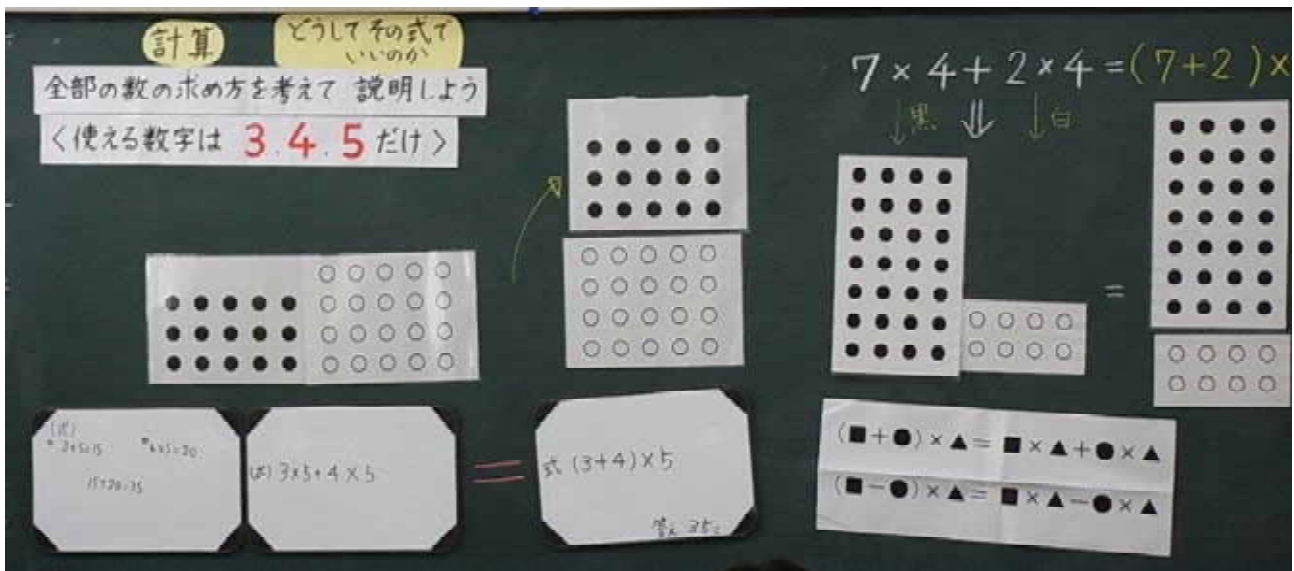 計算
どうしてその式で
いいのか
全部の数の求め方を考えて 説明しよう
〈使える数字は 3.4.5 だけ〉
7×4+2×4=(7+2)×
↓黒 ⇓ ↓白
=
(式)
3×5=15 4×5=20
15+20=35
(式) 3×5+4×5
=
式 (3+4)×5
答え 35こ
(■+●)×▲=■×▲+●×▲
(■-●)×▲=■×▲-●×▲